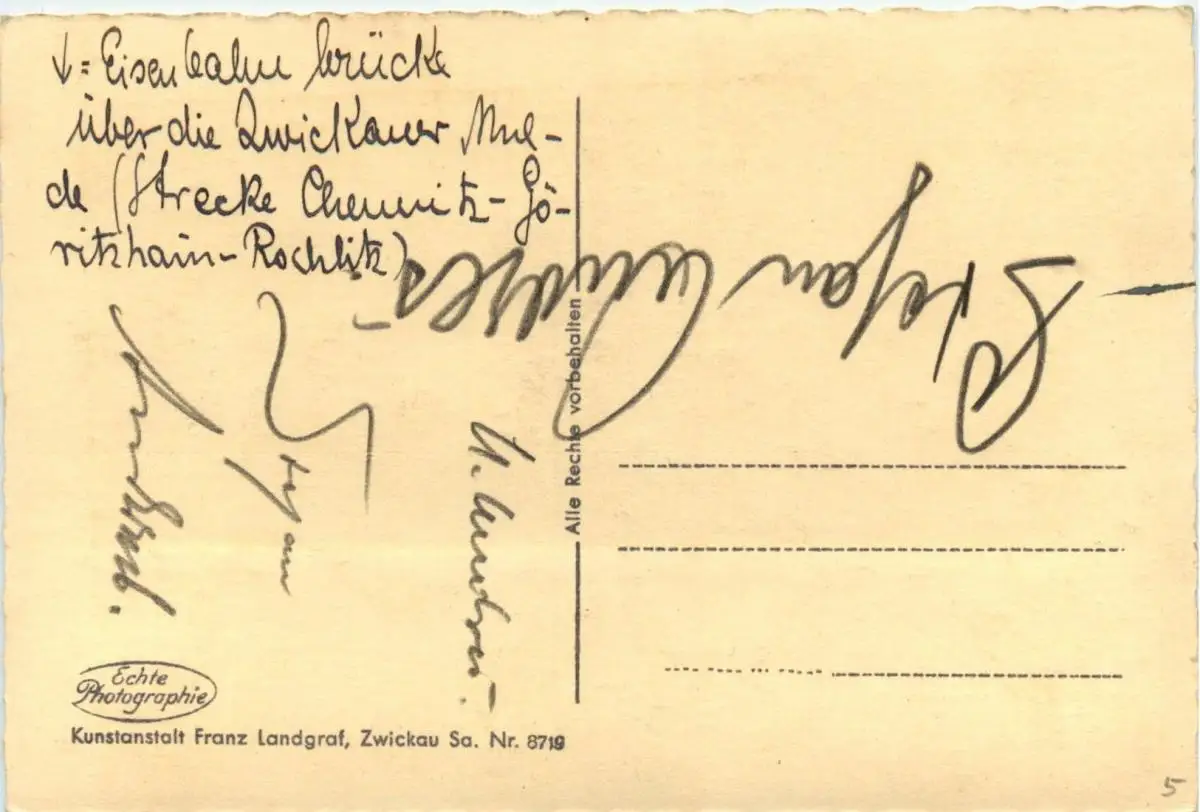 ↓ = Eisenbahnbrücke
über die Zwickauer Mul-
de (Strecke Chemnitz-Gö-
ritzhain-Rochlitz)
Stefan
Stefan
Alle Rechte vorbehalten
Echte
Photographie
Kunstanstalt Franz Landgraf, Zwickau Sa. Nr. 8719
5